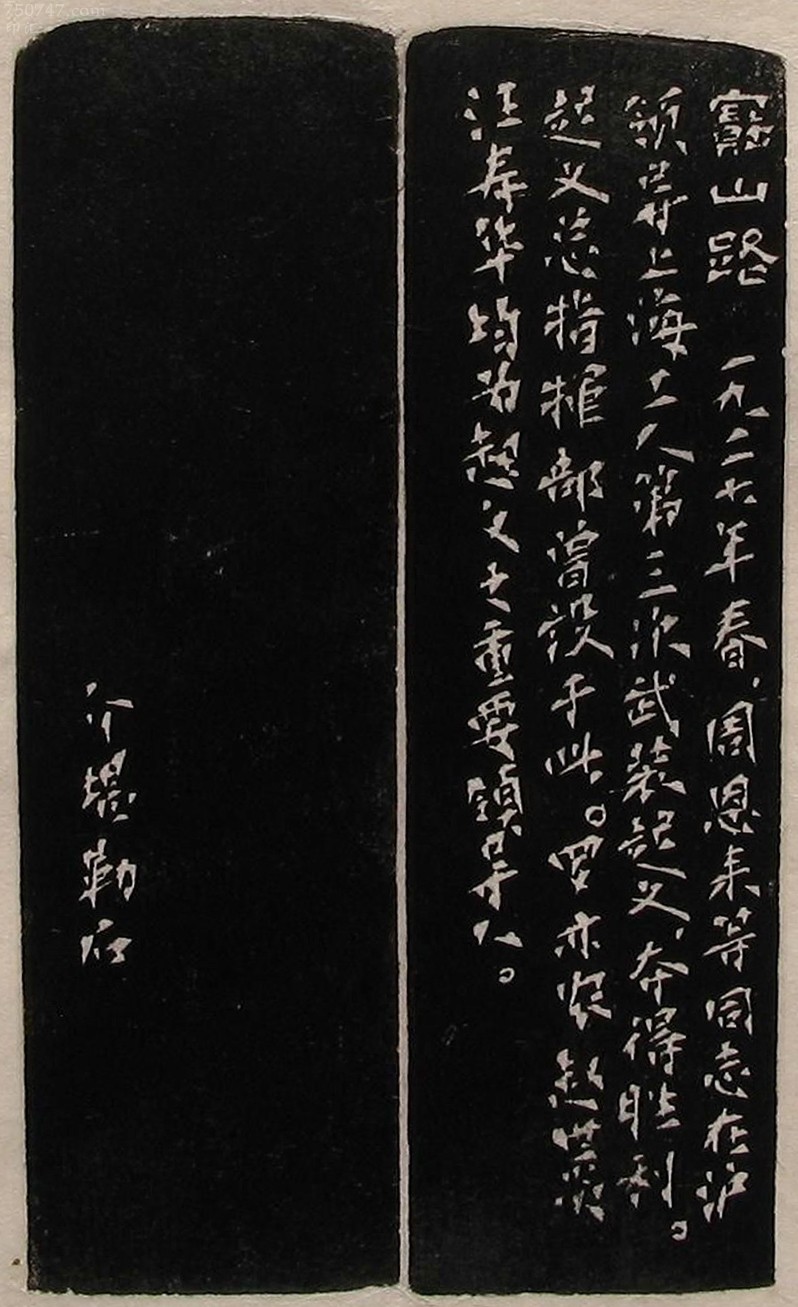 寶山路 一九二七年春,周恩来等同志在沪
领导上海工人第三次武装起义,夺得胜利。
起义总指挥部曾设于此。罗亦农赵世炎
汪寿华均为起义之重要领导人。
介堪勒石
750747.com